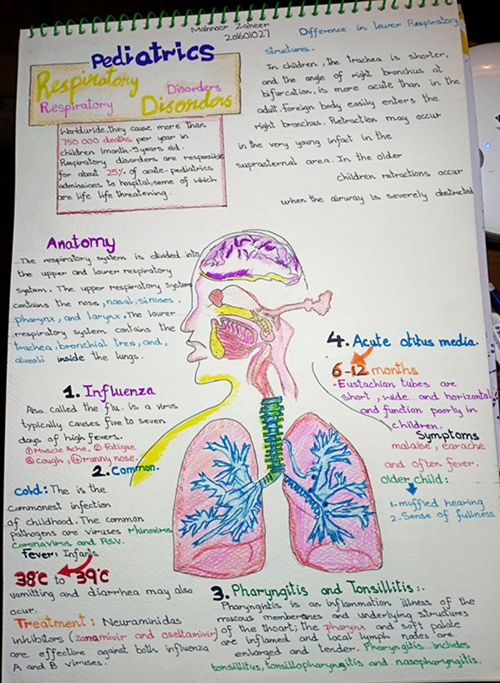 Mahnoor Zaheer
20161027
Pediatrics
Respiratory
Disorders
Respiratory
Disorders
Worldwide, they cause more than
750 000 deaths per year in
children 1month-5years old.
Respiratory disorders are responsible
for about 25% of acute pediatrics
admissions to hospital, some of which
are life life threatening.
Difference in lower Respiratory
structures.
In children, the trachea is shorter,
and the angle of right bronchus at
bifurcation, is more acute than in the
adult. foreign body easily enters the
right bronchus. Retraction may occur
in the very young infact in the
suprasternal area. In the older
children retractions occur
when the airway is severely obstructed
Anatomy
The respiratory system is divided into
the upper and lower respiratory
system. The upper respiratory system
contains the nose, nasal, sinuses,
pharynx, and larynx. The lower
respiratory system contains the
trachea, bronchial tree, and,
alveoli inside the lungs.
1. Influenza
Also called the flu. is a virus
typically causes five to seven
days of high fevers.
① Muscle Ache, ② Fatigue
③ Cough, ④ Runny nose.
2. Common.
Cold: The is the
commonest infection
of childhood. The common
pathogens are viruses rhinovirus
Coronavirus and RSV.
Fever: Infants
38°C to 39°C
vomitting and diarrhea may also
occur.
Treatment: Neuraminidas
inhibitors (zanamivir and oseltamivir)
are effective against both influenza
A and B viruses.
4. Acute otitus media.
6-12 months
• Eustachian tubes are
short, wide and horizontal
and function poorly in
children.
Symptoms
malaise, earache
and often fever.
older child:
1- muffled hearing
2- Sense of fullness
3. Pharyngitis and Tonsillitis:-
Pharyngitis is an inflammation illness of the
mucous membranes and underlying structures
of the thoart; the pharynx and soft palate
are inflamed and local lymph nodes are
enlarged and tender. Pharyngitis includes
tonsillitus, tonsillopharyngitis and nasopharyngitis.